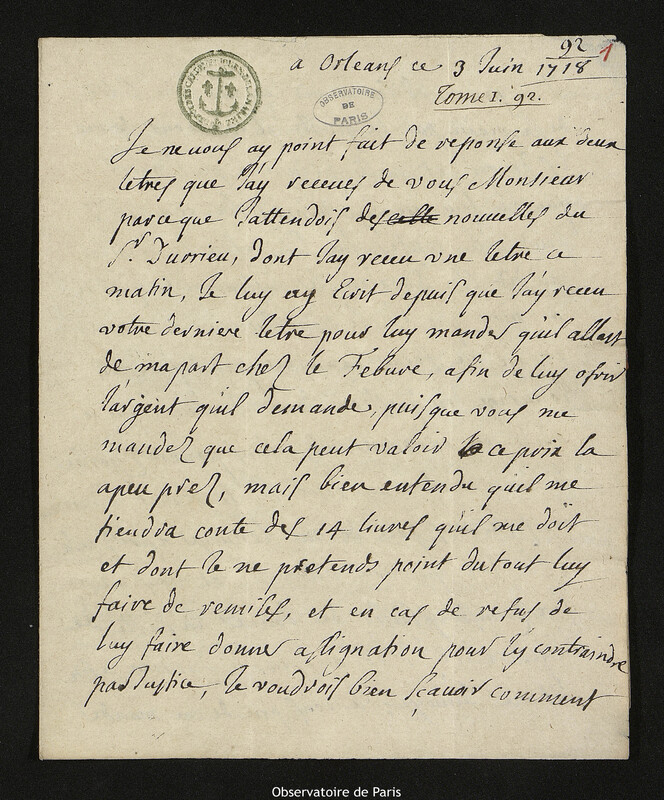 92 1
a Orleans ce 3 Juin 1718
Tome I. 92.
OBSERVATOIRE DE PARIS
Je ne vous ay point fait de reponse aux deux
letres que J'ay receues de vous Monsieur
parceque J'attendois des nouvelles du
Sr. Durrieu, dont J'ay receu une letre ce
matin, Je luy ay Ecrit depuis que J'ay receu
votre derniere letre pour luy mander qu'il allast
de ma part chez le Febure, afin de luy ofrir
l'argent qu'il demande, puisque vous me
mandez que cela peut valoir ce prix la
apeu prez, mais bien entendu qu'il me
tiendra conte des 14 livres qu'il me doit
et dont Je ne pretends point du tout luy
faire de remises, et en cas de refus de
luy faire donner assignation pour l'y contraindre
par Justice, Je voudrois bien sçavoir comment
Observatoire de Paris